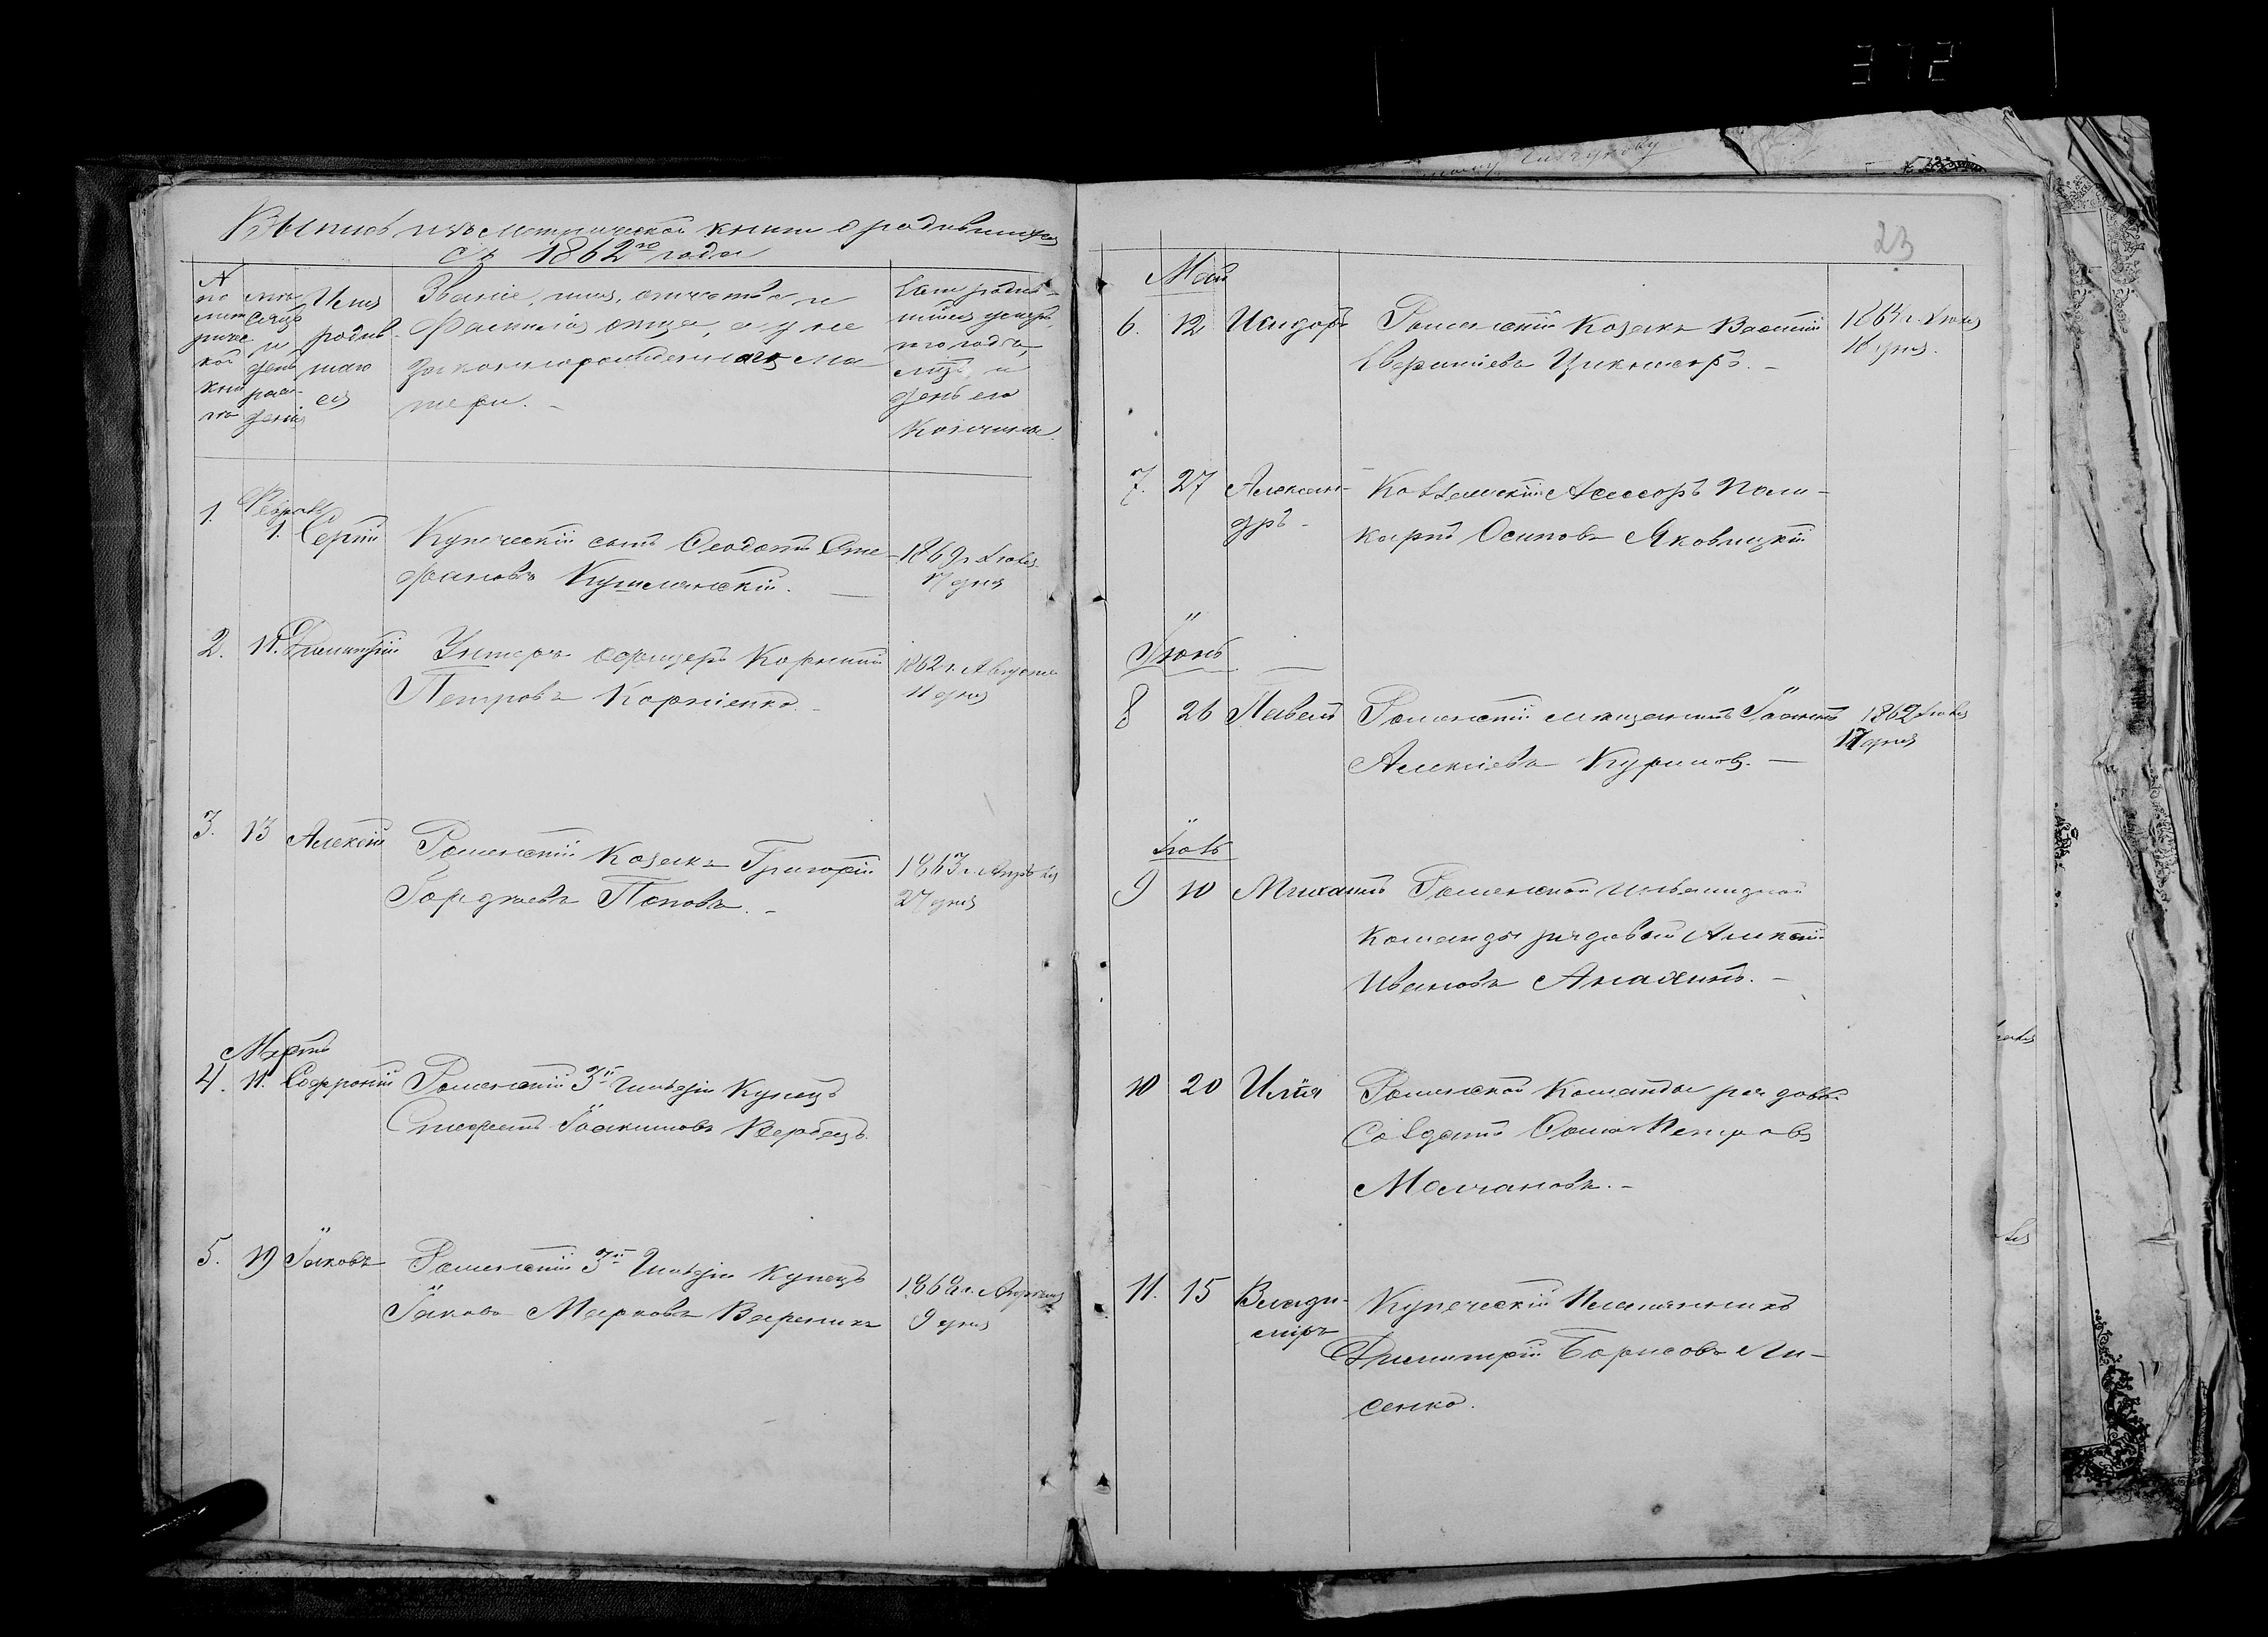 372
Выпись изъ метрической книги о родившихся
съ 1862го года
№ по метрической книге
месяцъ и день рождения
Имя родившагося
Званіе, имя, отчество и
фамилія отца, а у не
законнорожденнаго ма
тери. -
Если родив-
шійся умеръ,
то года,
мцъ и
день его
кончины
1. Февраль 1. Сергій Купеческій сынъ Феодотъ Сте-
фановъ Кушелянскій. 1869 г. Іюля
17 дня
2. 11. Димитрій Унтеръ офицеръ Корнилій
Петровъ Корніенко. - 1862 г. Августа
11 дня
3. 13 Алексій Роменскій Козакъ Григорій
Гордѣевъ Поповъ. - 1863 г. Апрѣля
27 дня
Мартъ
4. 11. Софроній Роменскій 3й Гильдіи Купецъ
Стефанъ Іоакимовъ Вербецъ.
5. 19 Іаковъ Роменскій 3й Гильдіи Купецъ
Іаковъ Марковъ Вареникъ 1868 г. Апрѣля
9 дня
23
Май
6. 12 Исидоръ Роменскій Козакъ Василій
1864 г. Іюля
10 дня.
7. 27 Алексан- Коллежскій Ассесоръ Поли-
дръ - карпъ Осиповъ Яковлицкій
Іюнь
8 26 Павелъ Роменскій мѣщанинъ Іоаннъ 1862 Іюля
Алексіевъ Куриловъ. - 17 дня
Іюль
9 10 Михаилъ Роменской инвалидной
команды рядовой Алексій
Ивановъ Анахинъ. -
10 20 Илія Роменской Команды рядовый
Солдатъ Фома Петровъ
Молчановъ. -
11. 15 Влади- Купеческій Племянникъ
міръ Димитрій Борисовъ Ли-
сенко.